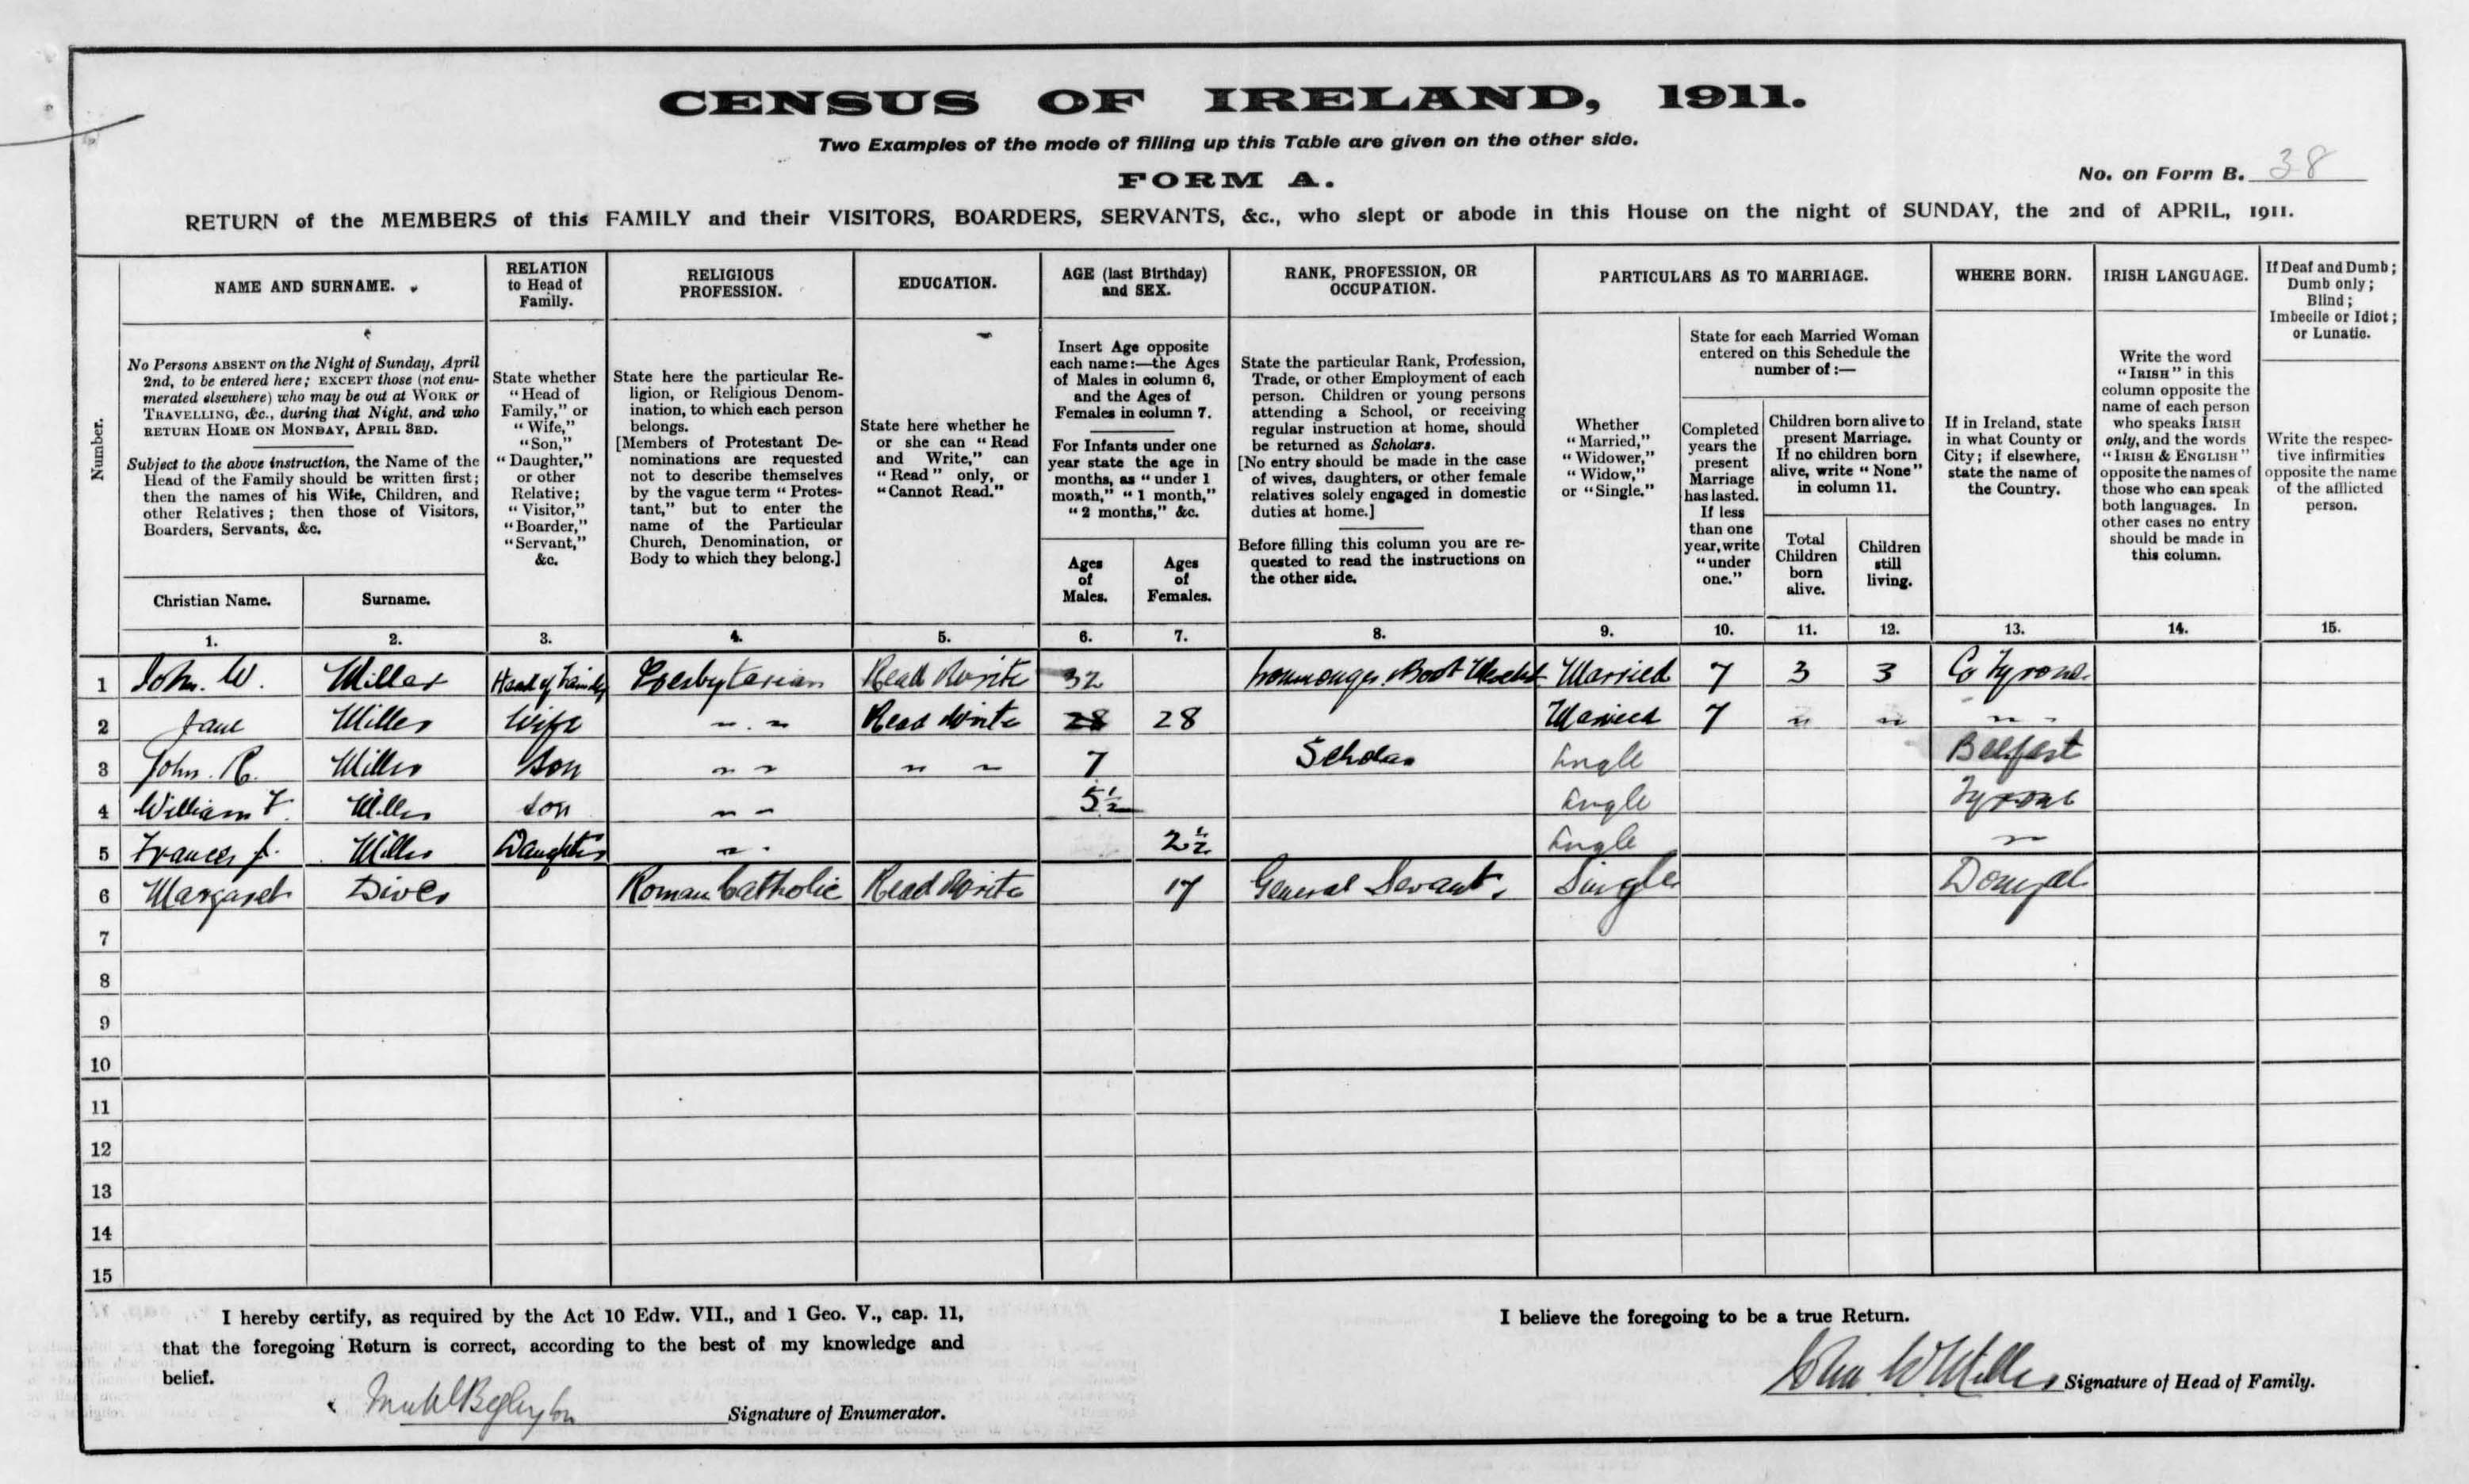 CENSUS OF IRELAND, 1911.
Two Examples of the mode of filling up this Table are given on the other side.
No. on Form B. 38
FORM A.
RETURN of the MEMBERS of this FAMILY and their VISITORS, BOARDERS, SERVANTS, &c., who slept or abode in this House on the night of SUNDAY, the 2nd of APRIL, 1911.
Number.
NAME AND SURNAME.
No Persons ABSENT on the Night of Sunday, April
2nd, to be entered here; EXCEPT those (not enu-
merated elsewhere) who may be out at WORK or
TRAVELLING, &c., during that Night, and who
RETURN HOME ON MONDAY, APRIL 3RD.
Subject to the above instruction, the Name of the
Head of the Family should be written first;
then the names of his Wife, Children, and
other Relatives; then those of Visitors,
Boarders, Servants, &c.
Christian Name.
Surname.
RELATION
to Head of
Family.
State whether
"Head of
Family," or
"Wife,"
"Son,"
"Daughter,"
or other
Relative;
"Visitor,"
"Boarder,"
"Servant,"
&c.
RELIGIOUS
PROFESSION.
State here the particular Re-
ligion, or Religious Denom-
ination, to which each person
belongs.
[Members of Protestant De-
nominations are requested
not to describe themselves
by the vague term "Protes-
tant," but to enter the
name of the Particular
Church, Denomination, or
Body to which they belong.]
EDUCATION.
State here whether he
or she can "Read
and Write," can
"Read" only, or
"Cannot Read."
AGE (last Birthday)
and SEX.
Insert Age opposite
each name:—the Ages
of Males in column 6,
and the Ages of
Females in column 7.
For Infants under one
year state the age in
months, as "under 1
month," "1 month,"
"2 months," &c.
Ages
of
Males.
Ages
of
Females.
RANK, PROFESSION, OR
OCCUPATION.
State the particular Rank, Profession,
Trade, or other Employment of each
person. Children or young persons
attending a School, or receiving
regular instruction at home, should
be returned as Scholars.
[No entry should be made in the case
of wives, daughters, or other female
relatives solely engaged in domestic
duties at home.]
Before filling this column you are re-
quested to read the instructions on
the other side.
PARTICULARS AS TO MARRIAGE.
Whether
"Married,"
"Widower,"
"Widow,"
or "Single."
State for each Married Woman
entered on this Schedule the
number of:—
Completed
years the
present
Marriage
has lasted.
If less
than one
year, write
"under
one."
Children born alive to
present Marriage.
If no children born
alive, write "None"
in column 11.
Total
Children
born
alive.
Children
still
living.
WHERE BORN.
If in Ireland, state
in what County or
City; if elsewhere,
state the name of
the Country.
IRISH LANGUAGE.
Write the word
"IRISH" in this
column opposite the
name of each person
who speaks IRISH
only, and the words
"IRISH & ENGLISH"
opposite the names of
those who can speak
both languages. In
other cases no entry
should be made in
this column.
If Deaf and Dumb;
Dumb only;
Blind;
Imbecile or Idiot;
or Lunatic.
Write the respec-
tive infirmities
opposite the name
of the afflicted
person.
1. 2. 3. 4. 5. 6. 7. 8. 9. 10. 11. 12. 13. 14. 15.
1 John. W. Miller Head of Family Presbyterian Read Write 32 Ironmonger. Boot Married 7 3 3 Co Tyrone
2 Jane Miller Wife " " Read Write 28 28 Married 7 " " "
3 John. R. Miller Son " " " " 7 Scholar Single Belfast
4 William F. Miller Son " " 5½ Single Tyrone
5 Frances J. Miller Daughter " " 2½ Single "
6 Margaret Diver Roman Catholic Read Write 17 General Servant. Single Donegal
7
8
9
10
11
12
13
14
15
I hereby certify, as required by the Act 10 Edw. VII., and 1 Geo. V., cap. 11,
that the foregoing Return is correct, according to the best of my knowledge and
belief.
Signature of Enumerator.
I believe the foregoing to be a true Return.
John W Miller Signature of Head of Family.